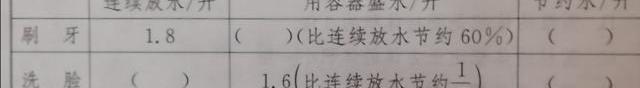 连续放水/升 用容器盛水/升 节约水/升
刷 牙 1.8 ( )(比连续放水节约 60%) ( )
洗 脸 ( ) 1.6(比连续放水节约1/) ( )